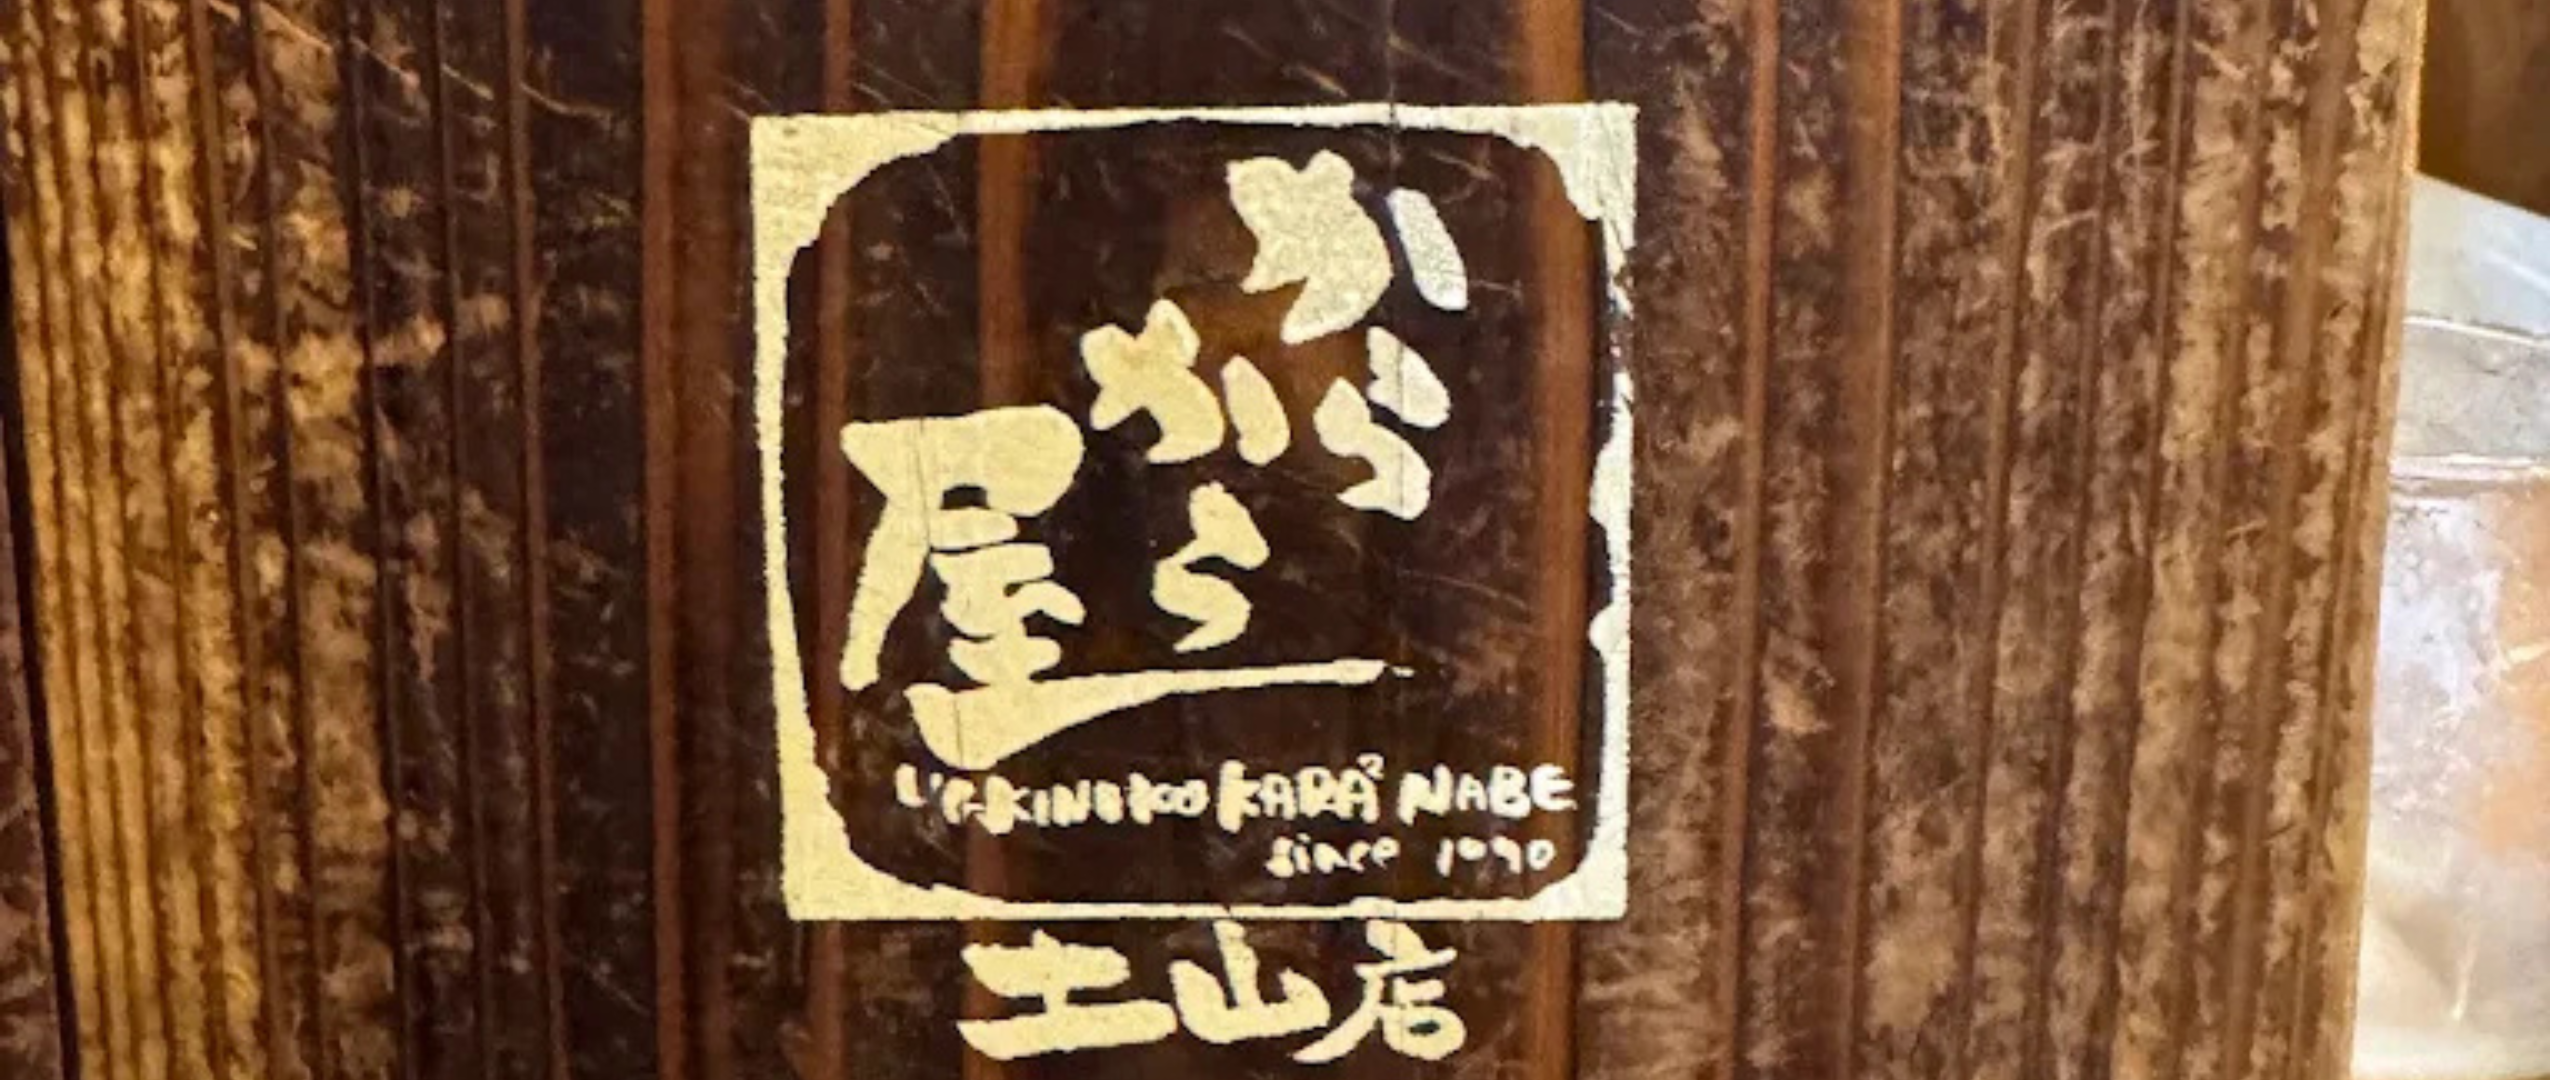 からから屋
KARA² NABE
since 1990
土山店